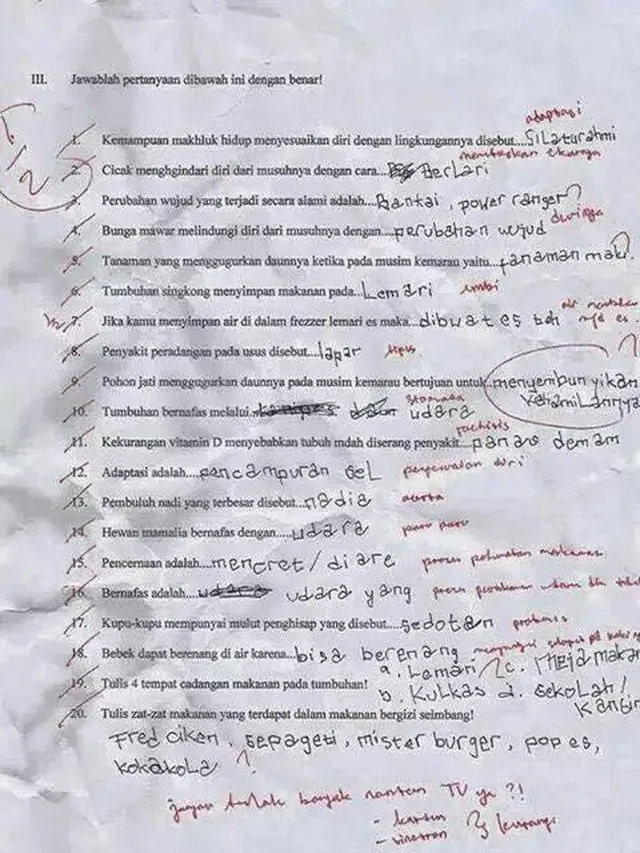 III. Jawablah pertanyaan dibawah ini dengan benar!
adaptasi
1. Kemampuan makhluk hidup menyesuaikan diri dengan lingkungannya disebut....SILaturahmi
2. Cicak menghgindari diri dari musuhnya dengan cara... Berlari
3. Perubahan wujud yang terjadi secara alami adalah....Bantai, power ranger ?
durinya
4. Bunga mawar melindungi diri dari musuhnya dengan....perubahan wujud
5. Tanaman yang menggugurkan daunnya ketika pada musim kemarau yaitu....tanaman mati.
6. Tumbuhan singkong menyimpan makanan pada....Lemari umbi
1/2 7. Jika kamu menyimpan air di dalam frezzer lemari es maka...dibuat es teh
8. Penyakit peradangan pada usus disebut....lapar tipus.
9. Pohon jati menggugurkan daunnya pada musim kemarau bertujuan untuk..menyembunyikan
kehamilannya
stomata
10. Tumbuhan bernafas melalui... udara
11. Kekurangan vitamin D menyebabkan tubuh mdah diserang penyakit....panas demam
12. Adaptasi adalah....pencampuran Gel penyesuaian diri
13. Pembuluh nadi yang terbesar disebut....nadia aorta
14. Hewan mamalia bernafas dengan....udara paru paru
15. Pencernaan adalah....mencret/diare proses pelumatan makanan
16. Bernafas adalah.... udara yang
17. Kupu-kupu mempunyai mulut penghisap yang disebut....sedotan probosis
18. Bebek dapat berenang di air karena...bisa berenang
19. Tulis 4 tempat cadangan makanan pada tumbuhan! a. Lemari c. Meja makan
b. Kulkas d. sekolah/
kantin
20. Tulis zat-zat makanan yang terdapat dalam makanan bergizi seimbang!
Fred ciken, sepageti, mister burger, pop es,
kokakola ?
jangan terlalu banyak nonton TV ya ?!
- kartun
- sinetron } kurangi